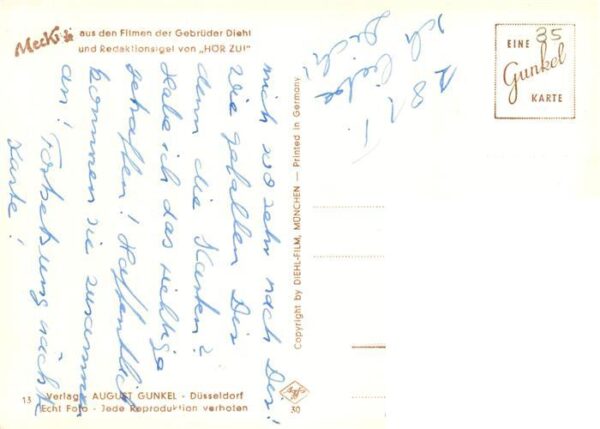 Mecki
aus den Filmen der Gebrüder Diehl
und Redaktionsigel von „HÖR ZU!"
EINE
35
Gunkel
KARTE
Ich liebe
Dich!
mich so sehr nach Dir!
Wie gefallen Dir
denn die Karten?
Habe ich das richtige
getroffen! Hoffentlich
kommen sie zusammen
an! Fortsetzung nächste
Karte!
Copyright by DIEHL-FILM, MÜNCHEN — Printed in Germany
13 Verlag AUGUST GUNKEL - Düsseldorf
Echt Foto - Jede Reproduktion verboten
30